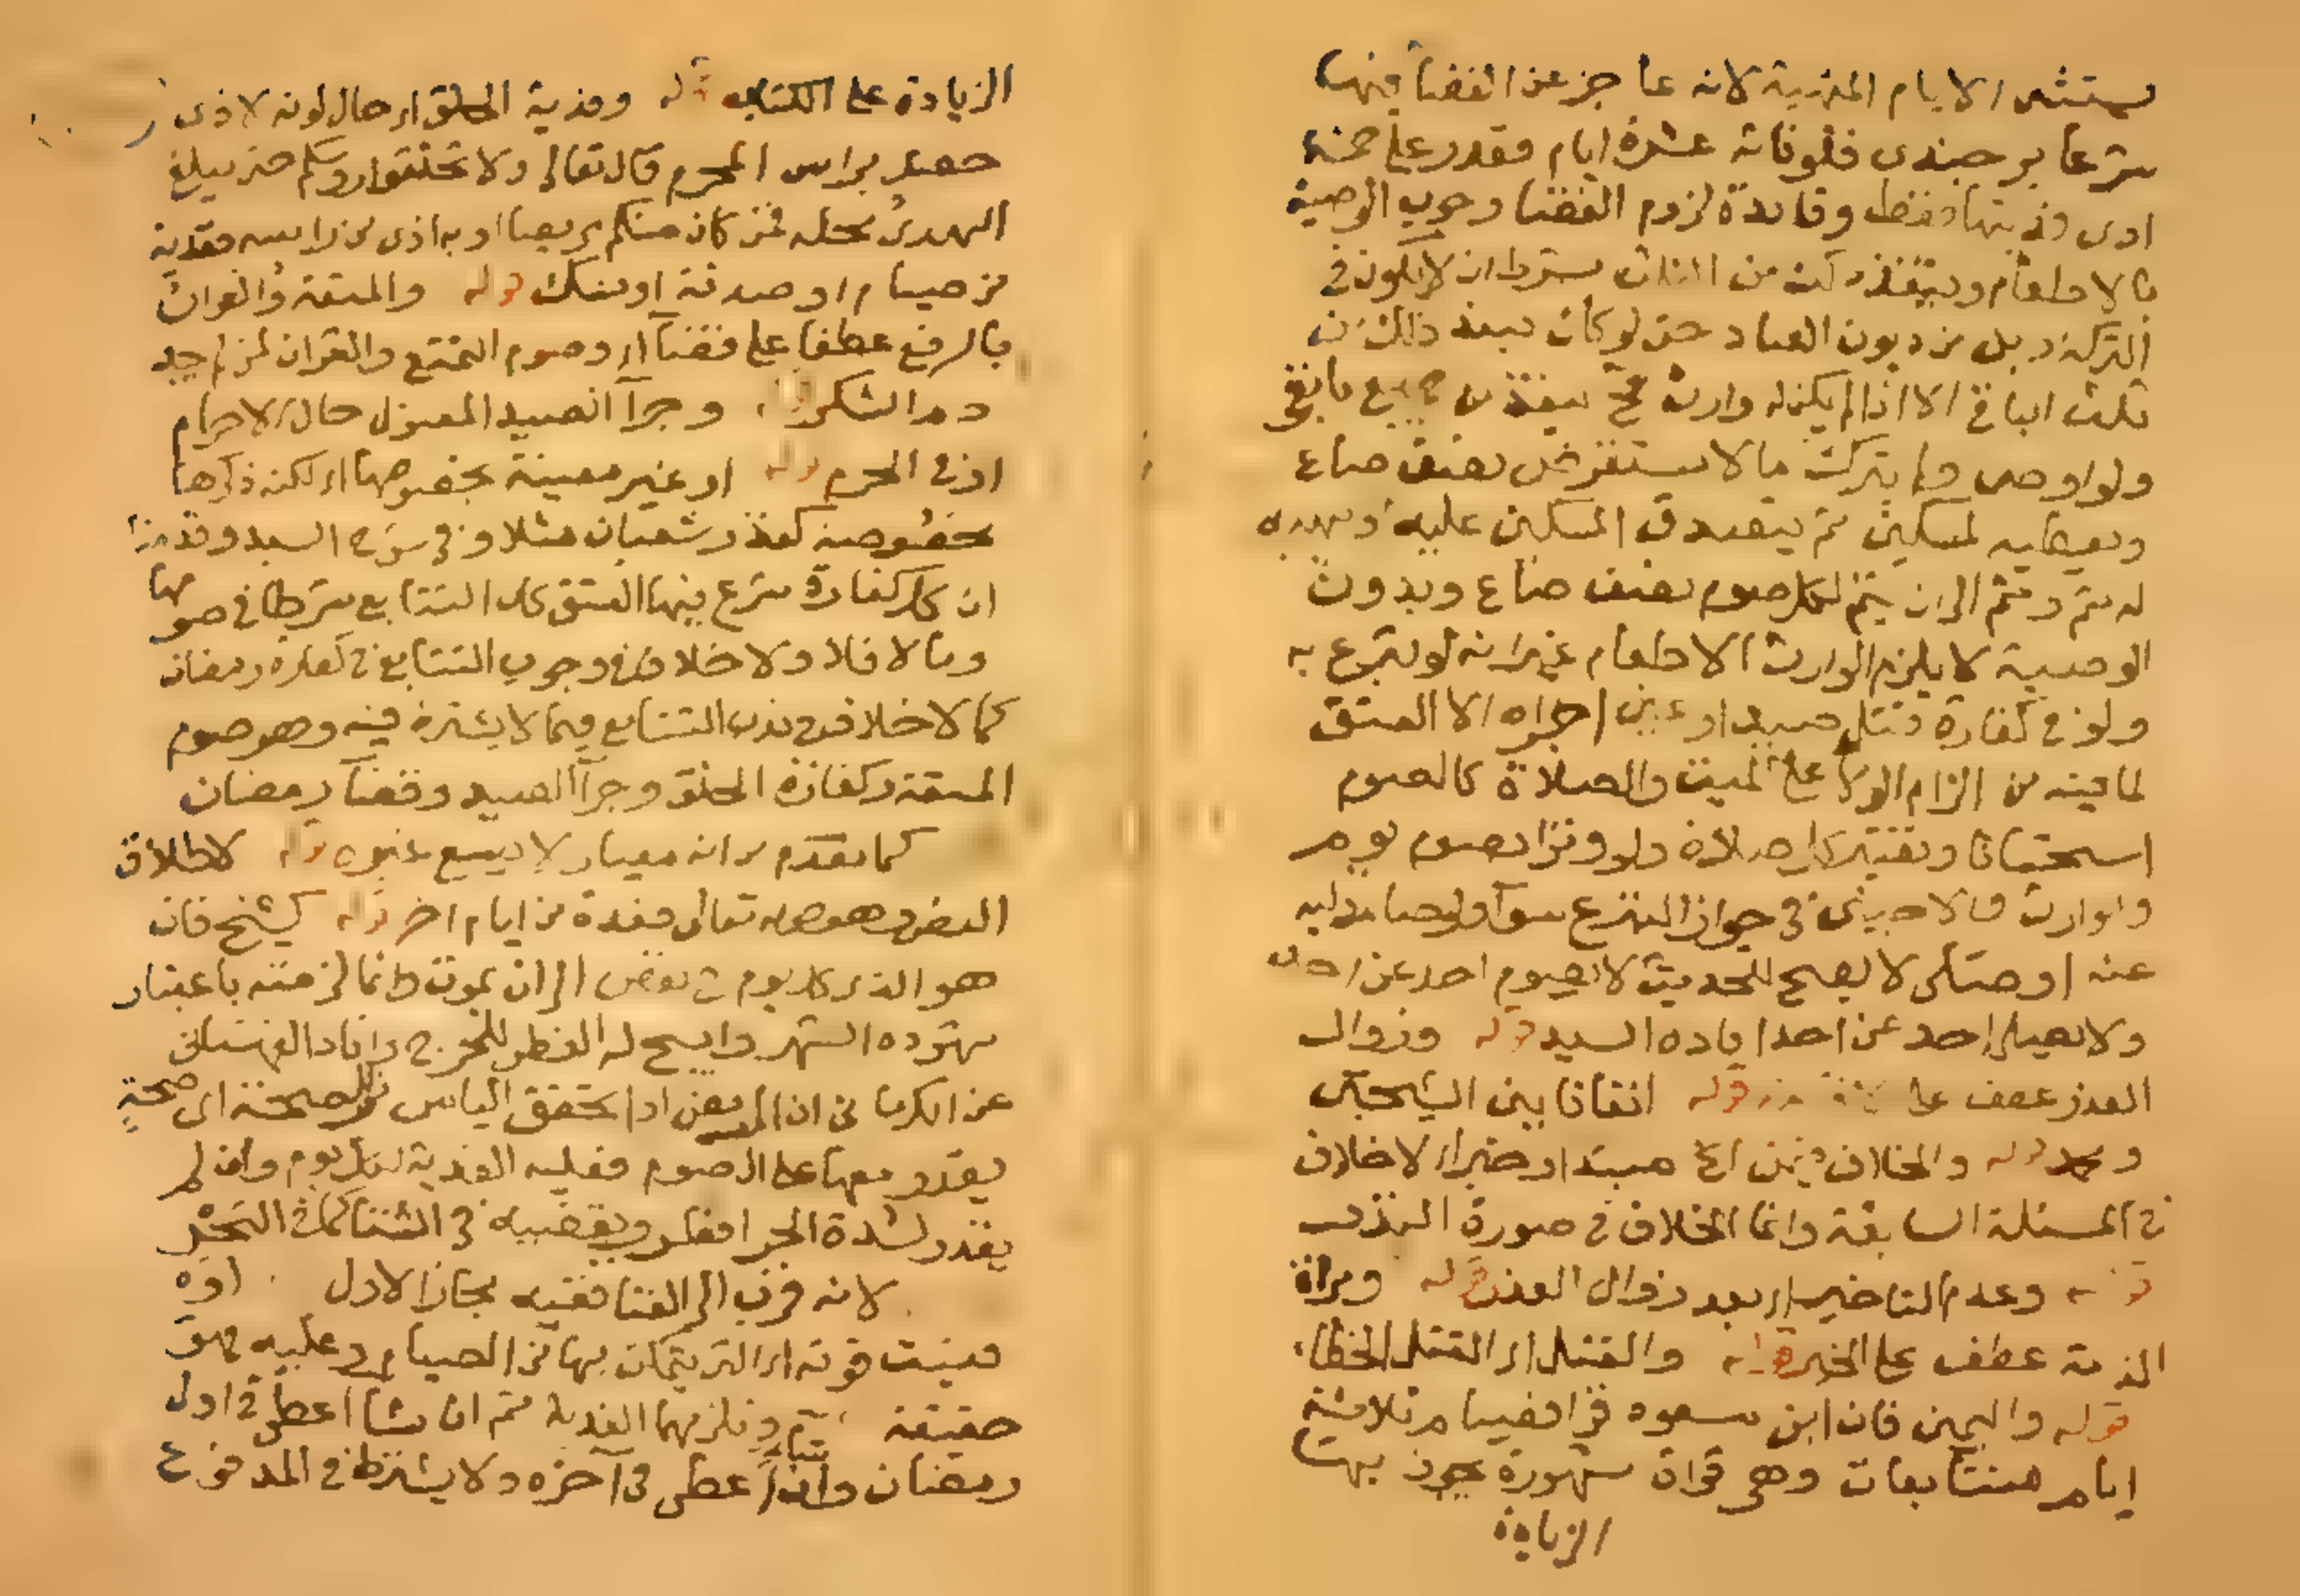 يستثنى الايام المنهية لانه عاجز عن القضا فيها
شرعا برجندى فلو فاته عشرة ايام فقدر على خمسة
ادى فديتها فقط وفايدة لزوم القضا وجوب الوصية
بالاطعام وينفذ لكنه من الثلث بشرط ان لا يكون في
التركة دين من ديون العباد حتى لو كان ينفذ ذلك من
ثلث الباقي الا اذا لم يكن له وارث فح ينفذ من جميع ما بقى
ولو اوصى ولم يترك مالا يستقرض نصف صاع
ويعطيه لمسكين ثم يتصدق المسكين عليه او يهبه
له ثم وثم الى ان يتم لكل صوم نصف صاع وبدون
الوصية لا يلزم الوارث الاطعام غير انه لو تبرع به
ولو في كفارة قتل صيد او يمين اجزاه الا العتق
لما فيه من الزام الولا على الميت والصلاة كالصوم
استحسانا وتعتبر كل صلاة ولو وترا بصوم يوم
والوارث كالاجنبى في جواز التبرع سوآ ولو صام وليه
عنه او صلى لا يصح للحديث لا يصوم احد عن احد
ولا يصلى احد عن احد افاده السيد قوله وزوال
العذر عطف على قوله اتفاقا بين الشيخين
ومحمد قوله والخلاف فيمن الخ مبتدا وخبر اى لا خلاف
في المسئلة السابقة وانما الخلاف في صورة النذر
قوله وعدم التاخير اى بعد زوال العذر قوله وبراة
الذمة عطف على الخير قوله والقتل اى القتل الخطاء
قوله واليمين فان ابن مسعود قرا فصيام ثلاثة
ايام متتابعات وهى قراة مشهورة يجوز بها
الزيادة
الزيادة على الكتاب قوله وفدية الحلق اى حال كونه لاذى
حصل براس المحرم قال تعالى ولا تحلقوا رؤسكم حتى يبلغ
الهدى محله فمن كان منكم مريضا او به اذى من راسه ففدية
من صيام او صدقة او نسك قوله والمتعة والقران
بالرفع عطفا على قضآ اى وصوم التمتع والقران لمن لم يجد
دم الشكر وجزآ الصيد المقتول حال الاحرام
او في الحرم قوله او غير معينة بخصوصها اى لكنه ذكرها
بخصوصه كنذر شعبان مثلا وفي شرح السيد وقدمنا
ان كل كفارة شرع فيها العتق كان التتابع شرطا في صومها
وما لا فلا ولا خلاف في وجوب التتابع في كفارة رمضان
كما لا خلاف في ندب التتابع فيما لا يشترط فيه وهو صوم
المتعة وكفارة الحلق وجزآ الصيد وقضآ رمضان
كما تقدم من انه معيار لا يسع غيره قوله لاطلاق
النص وهو قوله تعالى فعدة من ايام اخر قوله كشيخ فان
هو الذى كل يوم في نقص الى ان يموت وانما لزمته باعتبار
شهوده الشهر وابيح له الفطر للحرج وافاد القهستانى
عن الكرمانى ان المريض اذا تحقق الياس من الصحة اى صحة
يقدر معها على الصوم فعليه الفدية لكل يوم وان لم
يقدر لشدة الحر افطر ويقضيه في الشتا كما في البحر
لانه قرب الى الفنا فتسميته مجاز الاول او لانه
فنيت قوته اى التى يتمكن بها من الصيام وعليه فهو
حقيقة وتلزمهما الفدية ثم ان شا اعطى في اول
رمضان وان شآ اعطى في آخره ولا يشترط في المدفوع